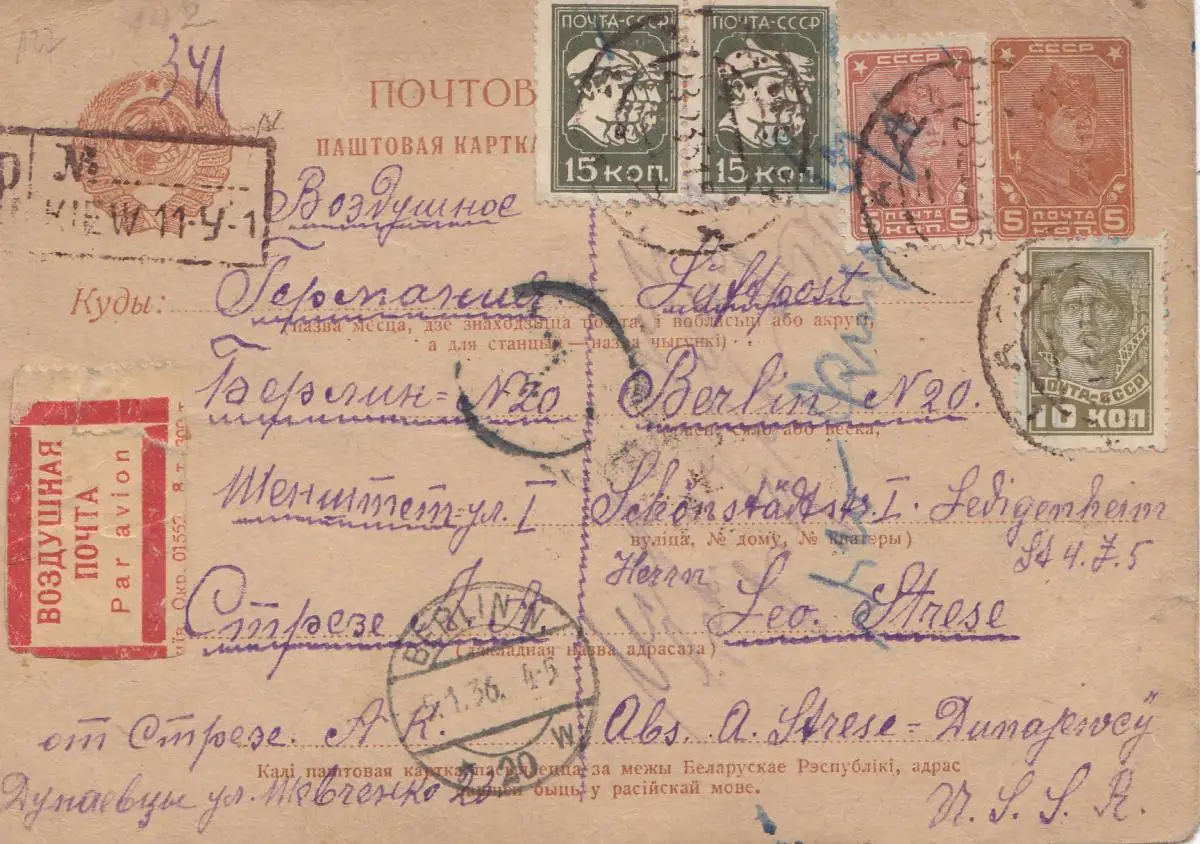 142
122
341
ПОЧТА-СССР
15 КОП.
ПОЧТА-СССР
15 КОП.
СССР
5 ПОЧТА КОП. 5
СССР
5 ПОЧТА КОП. 5
ПОЧТОВ
ПАШТОВАЯ КАРТКА
№
KIEW 11-У-1
Воздушное
Куды: Германия Luftpost
(назва месца, дзе знаходзіцца пошта, і вобласьці або акругі,
а для станцыі — назва чыгункі)
ПОЧТА-СССР
10 КОП
Берлин = N20 Berlin N20.
або вёска,
ВОЗДУШНАЯ
ПОЧТА
Par avion
Окр. 01552
Шенштет-ул. I Schönstedtstr. I. Ledigenheim
вуліца, № дому, № кватэры)
St 4. Z. 5
Herrn
Стрезе Л. А. Leo. Strese
(дакладная назва адрасата)
BERLIN N.
1.36. 4-5
* 20 w
от Стрезе А К. Abs. A. Strese = Dunajewcy
Калі паштовая картка пасылаецца за межы Беларускае Рэспублікі, адрас
Дунаевцы ул. Шевченко 20
быць у расійскай мове.
U. S. S. R.